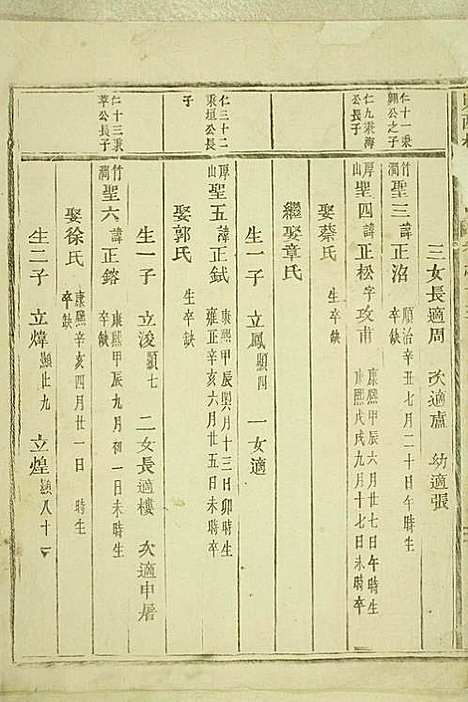 三女長適周 次適盧 幼適張
仁十一秉
錫公之子
竹澗 聖三 諱正洺 順治辛丑七月二十日午時生 卒缺
仁九秉海
公長子
厚山 聖四 諱正松 字攻甫 康熙甲辰六月廿七日午時生 康熙戊戌九月十七日未時卒
娶蔡氏 生卒缺
繼娶章氏
生一子 立鳳 顯四 一女適
仁三十二
秉垣公長
子
厚山 聖五 諱正鉽 康熙甲辰閏月十三日卯時生 雍正辛亥六月廿五日未時卒
娶郭氏 生卒缺
生一子 立浚 顯七 二女長適樓 次適申屠
仁十三秉
莘公長子
竹澗 聖六 諱正鎔 康熙甲辰九月初一日未時生 卒缺
娶徐氏 康熙辛亥四月廿一日 時生 卒缺
生二子 立煒 顯廿九 立煌 顯八十